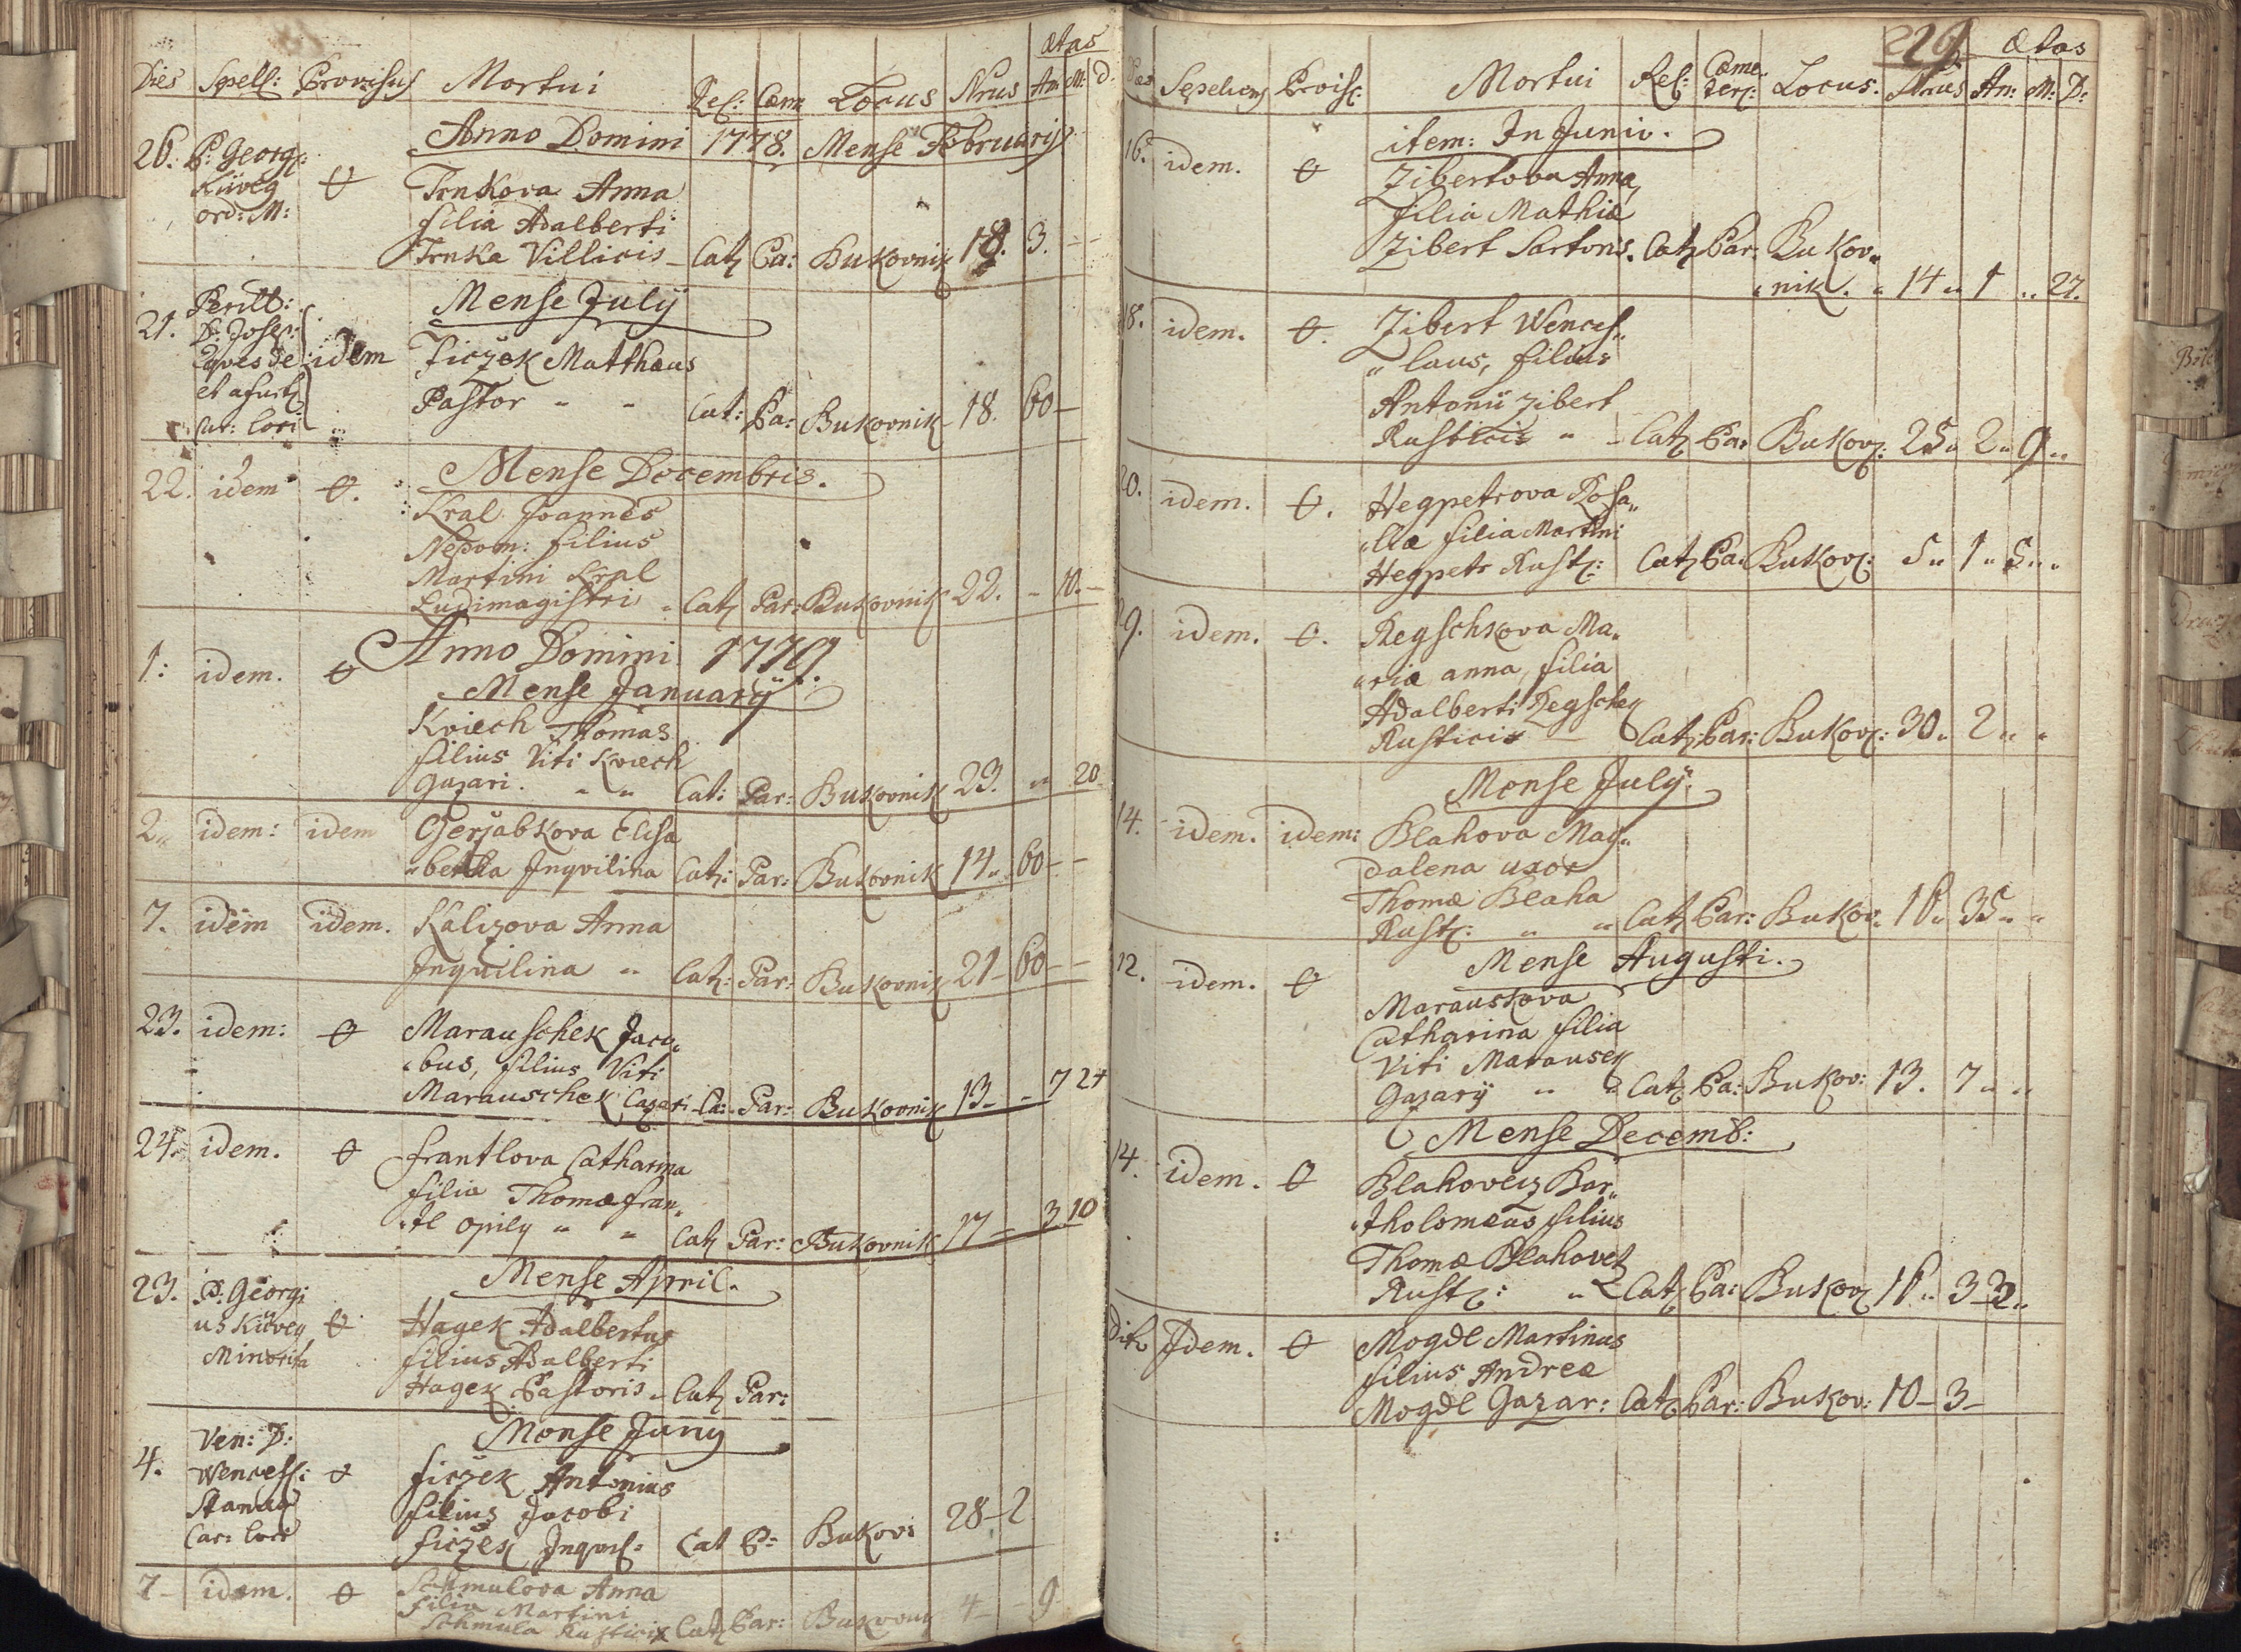 ætas
Dies Sepell: Provisus Mortui Rel: Cæm Locus Nrus An: M: D:
Anno Domini 1778. Mense Februarÿ
26. P: Georg:
Küveg ꝋ Trnkova Anna
ord: M: filia Adalberti
Trnka Villicis Cat Pa: Bukovnik 18. 3. – –
Mense Julÿ
21. D: Joseph idem Ficzek Matthæus
Pastor „ „ Cat: Pa: Bukovnik 18. 60 –
Cur: Loci
Mense Decembris.
22. idem ꝋ. Kral Joannes
Nepom: filius
Martini Kral
Ludimagistri „ Cat Par: Bukovnik 22. – 10. –
Anno Domini 1779
1: idem. ꝋ Mense Januarÿ
Kviech Thomas
filius Viti Kviech
Gazari. „ „ Cat: Par: Bukovnik 23. „ 20
2„ idem: idem Gerjabkova Elisa
„betha Inqvilina Cat: Par: Bukovnik 14„ 60 – –
7. idem idem. Kalizova Anna
Inquilina „ Cat: Par: Bukovnik 21 – 60 – –
23. idem: ꝋ Marauschek Jaco„
„bus, filius Viti
Marauschek Cazari Ca: Par: Bukovnik 13 – – 7 24
24. idem. ꝋ Frantlova Catharina
filia Thomæ Fran„
„tl opily „ „ Cat Par: Bukovnik 17 – 3 10
Mense April.
23. P: Georgi
us Küveg ꝋ Hagek Adalbertus
Minorita filius Adalberti
Hagek Pastoris „ Cat Par:
Mense Juny
Ven: D:
4. Wencesl: ꝋ Ficzek Antonius
filius Jacobi
Ficzek Inqvil: Cat P: Bukov: 28 – 2
7 – idem. ꝋ Schmulova Anna
filia Martini
Schmula Rustici Cat Par: Bukovnik 4 – – 9
229 Ætas
Dies Sepeliens Provis: Mortui Rel: Cæme„ter: Locus. Nrus An: M: D:
item: In Junio.
16. idem. ꝋ Zibertova Anna,
filia Mathiæ
Zibert Sartoris. Cat Par: Bukov„
„nik. „ 14 „ 1 „ 27.
18. idem. ꝋ. Zibert Wences„
„laus, filius
Antonii Zibert
Rusticis „ – Cat Pa: Bukov: 25„ 2„ 9„
20. idem. ꝋ. Hegpetrova Rosa„
„liæ filia Martini
Hegpetr Rust: Cat Pa: Bukov: 5„ 1„ 5„ „
29. idem. ꝋ. Regschkova Ma„
„riæ anna, filia
Adalberti Regschek
Rusticis – Cat: Par: Bukov: 30„ 2„ „
Mense Julÿ.
14. idem. idem: Blahova Mag„
dalena uxor
Thomæ Blaha
Rust: „ „ Cat Par: Bukov. 16„ 35„ „
Mense Augusti.
12. idem. ꝋ Marauskova
Catharina filia
Viti Marausek
Gazarÿ „ „ Cat Pa: Bukov: 13. 7„ „
Mense Decemb:
14. idem. ꝋ Blahovecz Bar„
„tholomæus filius
Thomæ Blahovetz
Rust: „ Cat Pa: Bukov 16„ 3 – 3„
Dito Idem. ꝋ Mogdl Martinus
filius Andreæ
Mogdl Gazar: Cat Par: Bukov: 10 – 3 –